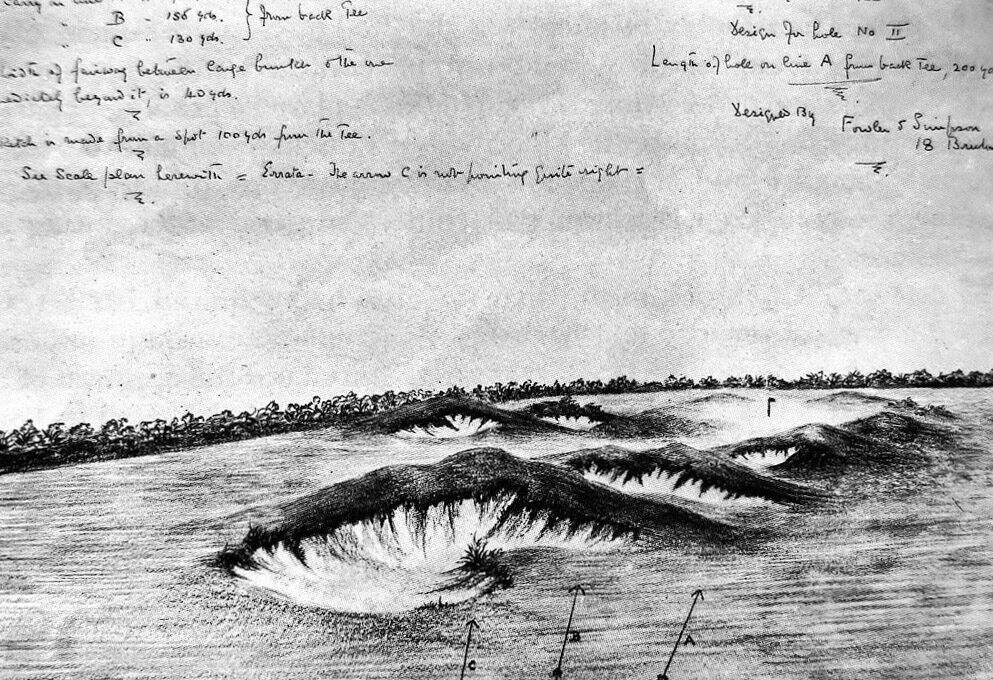 B " 156 yds. } from back Tee
C " 130 yds.
Width of fairway between large bunker & the one
immediately beyond it, is 40 yds.
Sketch is made from a spot 100 yds from the Tee.
See Scale plan herewith = Errata - The arrow C is not pointing quite right =
Design for hole No II
Length of hole on line A from back Tee, 200 yds
Designed By
Fowler & Simpson
18
C
B
A